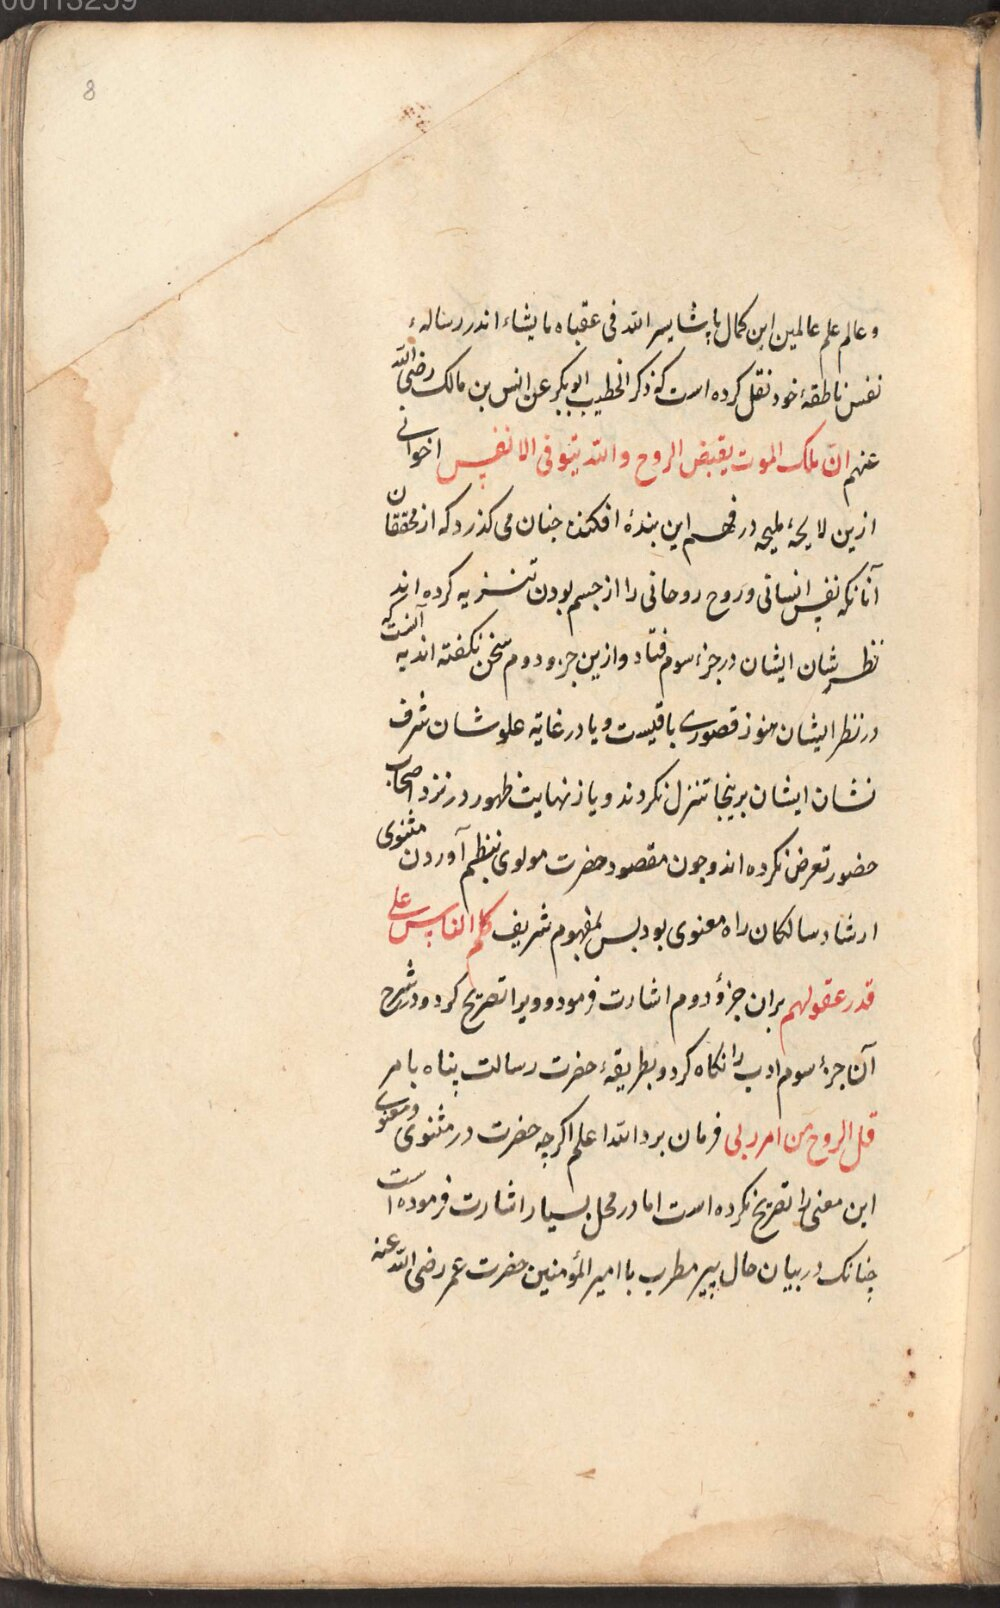 00113259
8
و عالم علم عالمین ابن کمال پاشا یسر الله فی عقباه ما یشاء اندر رساله‌ء
نفس ناطقهٔ خود نقل کرده است که ذکر الخطیب ابو بکر عن انس بن مالک رضی الله
عنهم ان ملک الموت یقبض الروح والله یتوفی الانفس اخوانی
ازین لایحهٔ ملیحه در فهم این بندهٔ افکنده جنان می کذرد که از محققان
آنانکه نفس انسانی و روح روحانی را از جسم بودن تنزیه کرده اند
نظر شان ایشان در جزء سوم فتاد و ازین جزو دوم سخن نکفته اند یه آنست که
در نظر ایشان هنوز قصوری باقیست و یا در غایه علو شان شرف
نشان ایشان برینجا تنزل نکردند و یا ز نهایت ظهور در نزد اصحاب
حضور تعرض نکرده اند و جون مقصود حضرت مولوی بنظم آوردن مثنوی
ارشاد سالکان راه معنوی بود بس بمفهوم شریف کلم الناس علی
قدر عقولهم بران جزؤ دوم اشارت فرمود و ویرا تصریح کرد و در شرح
آن جزء سوم ادب را نکاه کرد و بطریقهٔ حضرت رسالت پناه بامر
قل الروح من امر ربی فرمان برد الله اعلم اکرجه حضرت در مثنوی و معنوی
این معنی را تصریح نکرده است اما در محل بسیار اشارت فرموده است
چنانک در بیان حال پیر مطرب با امیر المؤمنین حضرت عمر رضی الله عنه